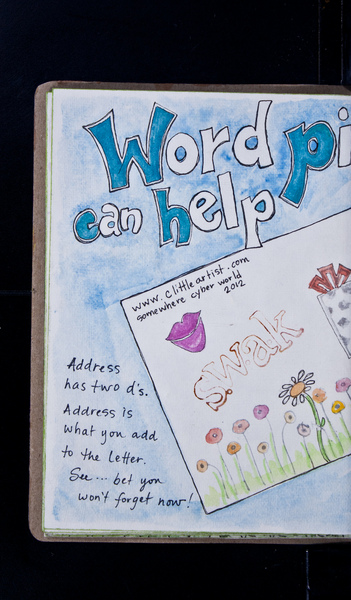 Word pi
can help
www.clittleartist.com
somewhere cyber world
2012
swak
Address
has two d's.
Address is
what you add
to the letter.
See ... bet you
won't forget now!